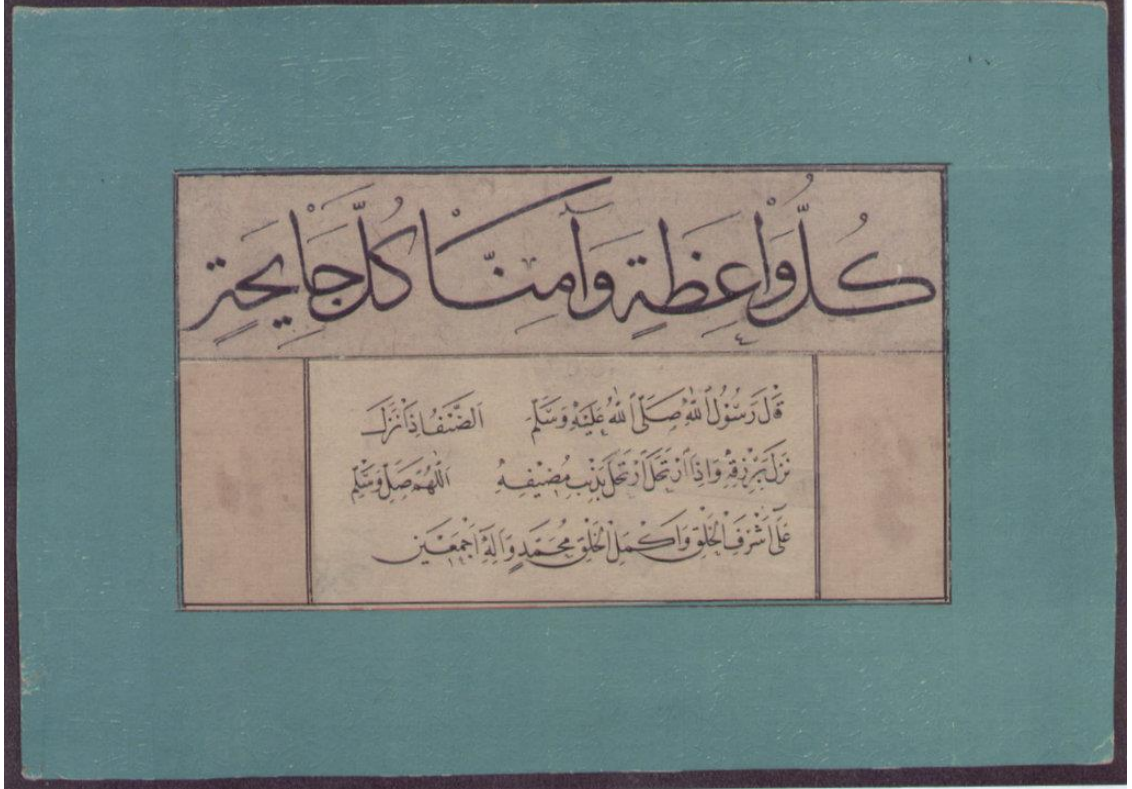 كُلُّ وَاعِظَةٍ وَآمِنَّا كُلَّ جَايِحَةٍ
قَالَ رَسُولُ اللّٰهِ صَلَّى اللّٰهُ عَلَيْهِ وَسَلَّمَ الضَّيْفُ اِذَا نَزَلَ
نَزَلَ بِرِزْقِهِ وَاِذَا ارْتَحَلَ ارْتَحَلَ بِذَنْبِ مُضَيِّفِهِ اَللّٰهُمَّ صَلِّ وَسَلِّمْ
عَلَى اَشْرَفِ الْخَلْقِ وَاَكْمَلِ الْخَلْقِ مُحَمَّدٍ وَاٰلِهِ اَجْمَعِينَ